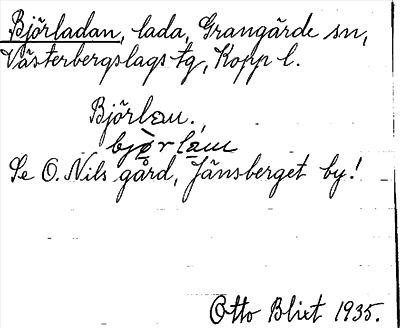 Björladan, lada, Grangärde sn,
Västerbergslags tg, Kopp l.
Björlan.
bjòrlan
Se O. Nils gård, Jänsberget by!
Otto Blixt 1935.